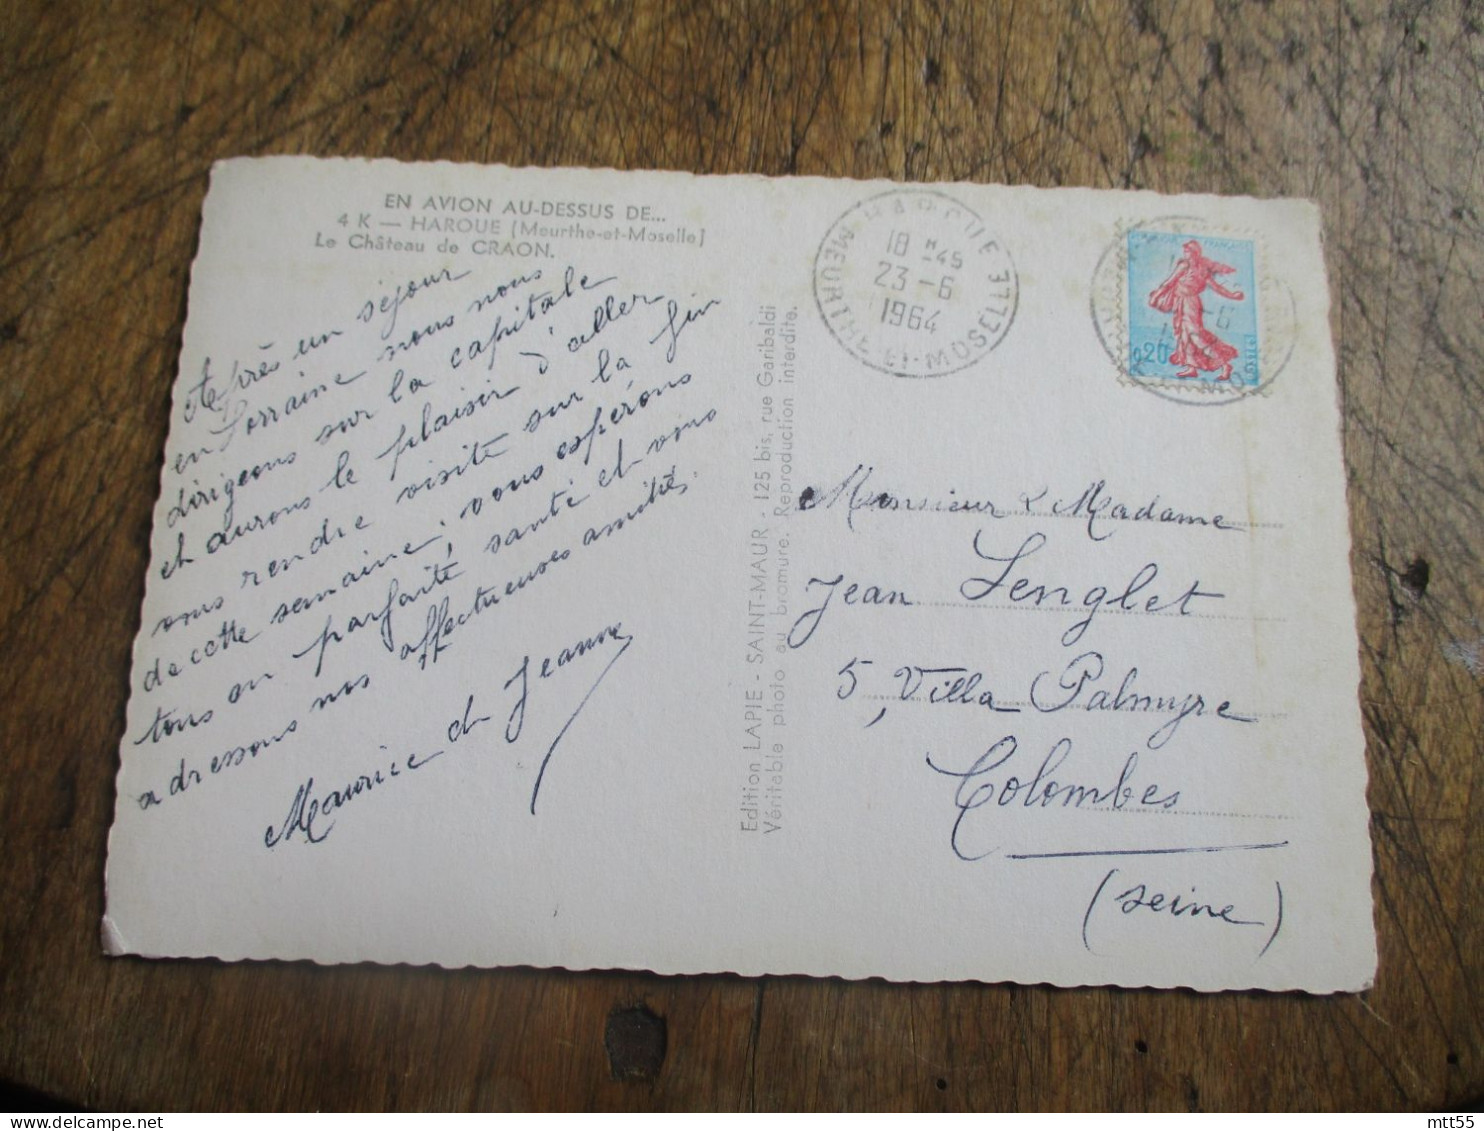 EN AVION AU-DESSUS DE...
4 K — HAROUE (Meurthe-et-Moselle)
Le Château de CRAON.
Après un séjour
en Lorraine nous nous
dirigeons sur la capitale
et aurons le plaisir d'aller
vous rendre visite sur la fin
de cette semaine; vous espérons
tous en parfaite santé et vous
adressons nos affectueuses amitiés.
Maurice et Jeanne
Edition LAPIE - SAINT-MAUR - 125 bis, rue Garibaldi
Véritable photo au bromure. Reproduction interdite.
HAROUE
18 H 45
23 - 6
1964
MEURTHE-ET-MOSELLE
0,20
Monsieur & Madame
Jean Lenglet
5, Villa Palmyre
Colombes
(Seine)
mtt55